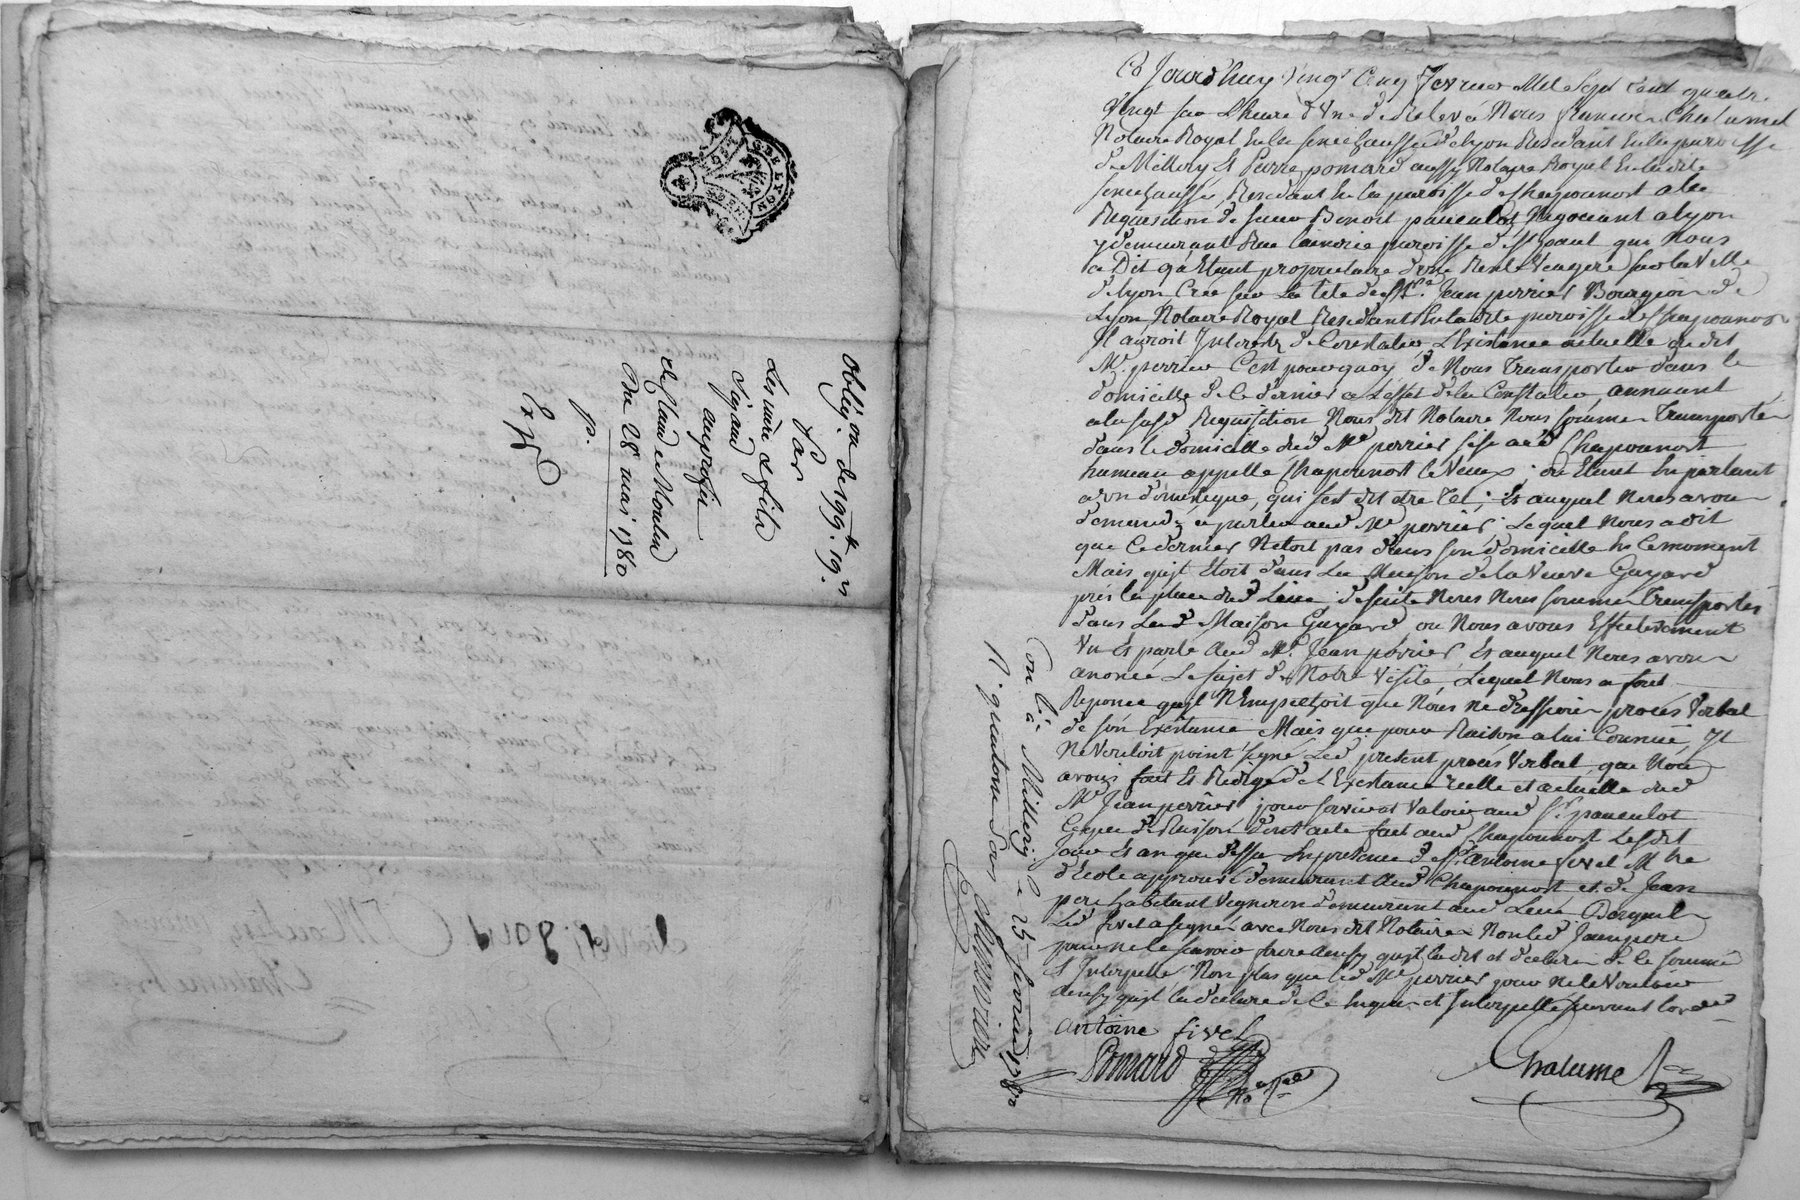 GEN. DE LYON
Oblig.on de 199.tt 19.s
Par
Les mère & fils
Sigaud
au profit
de Claude Moulin
Du 28 mai 1780
p.
Exp.
Ce Jourd'huy vingt Cinq Fevrier Mil Sept Cent quatre
Vingt sur L'heure d'Une de Relevé Nous francois Chalumet
Notaire Royal En la senechaussée de lyon Residant En la paroisse
de Millery Et Pierre pomard aussy Notaire Royal En ladite
senechaussée, Residant En la paroisse de Chaponost a la
Requisition de sieur Benoit paneulot Negociant a lyon
y demeurant Rue Laineric paroisse de St paul qui Nous
a Dit q'u Etant proprietaire d'une Rente Viagere sur la Ville
de lyon Créé sur La tête de Mre. Jean perrier Bourgeois de
Lyon Notaire Royal Residant En ladite paroisse de Chaponost
Il auroit Interest de Constater L'Existence actuelle du dit
Me. perrier C'est pourquoy de Nous Transporter dans le
domicille de Ce dernier a L'effet de la Constater, annuant
a la susd Requisition Nous dit Notaire Nous sommes Transporté
dans le domicille dud Me perrier sise aud Chaponost
hameau appellé Chaponost le Vieux; ou Etant En parlant
a un domestique, qui s'est dit être tel; Et auquel Nous avons
demandé a parler aud Me perrier; Lequel Nous a dit
que Ce dernier N'etoit pas dans son domicille En le moment
Mais qu'jl Etoit dans La Maison de la Veuve Guyard
pres la place dud Lieu de suite Nous Nous sommes Transportés
dans Lad Maison Guyard ou Nous avons Effectivement
Vu Et parlé aud Me. Jean perrier Et auquel Nous avons
anoncé Le sujet de Notre Visite, Lequel Nous a fait
Reponce qu'jl N'Empechoit que Nous ne dressions procés Verbal
de son Existance Mais que pour Raison a lui Connue, Jl
Ne Vouloit point signé Led present procés Verbal que Nous
avons fait Et Redigé de L'Existance réelle et actuelle dud
Me Jean perrier pour servir et Valoir aud Sr. paneulot
Ce que de Raison dont acte fait aud Chaponost Lesdit
Jour Et an que dessus En presence de Sr. antoine fivel Mtre
d'Ecole approuvé demeurant aud Chaponost, et de Jean
pere habitant Vigneron demeurant aud Lieu Desquel
Led fivel a signé avec Nous dit Notaires Non led Jean pere
pour ne le savoir faire Ainsy qu'jl la dit et declaré de Ce sommé
& Interpellé Non plus que led Me perrier pour Ne le Vouloir
Ainsy qu'jl la declaré de Ce Enquis et Interpellé suivant l'ord.
antoine fivel
Pomard
No. Ral
Chalumet
Con.lé a Millery Le 25 fevrier 1780
R. quatorze sols Charrin